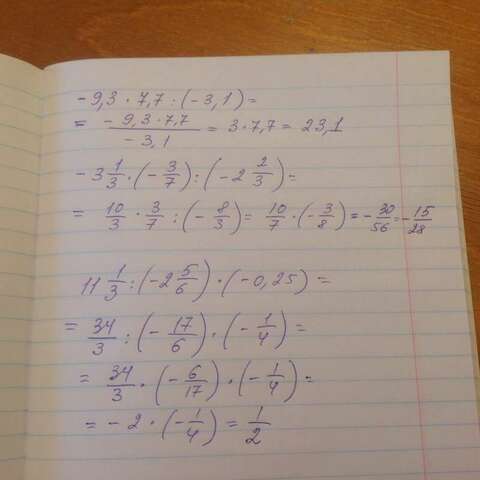 - 9,3 • 7,7 : (- 3,1) =
= (- 9,3 • 7,7)/(- 3,1) = 3 • 7,7 = 23,1
- 3 1/3 • (- 3/7) : (- 2 2/3) =
= 10/3 • 3/7 : (- 8/3) = 10/7 • (- 3/8) = - 30/56 = - 15/28
11 1/3 : (- 2 5/6) • (- 0,25) =
= 34/3 : (- 17/6) • (- 1/4) =
= 34/3 • (- 6/17) • (- 1/4) =
= - 2 • (- 1/4) = 1/2